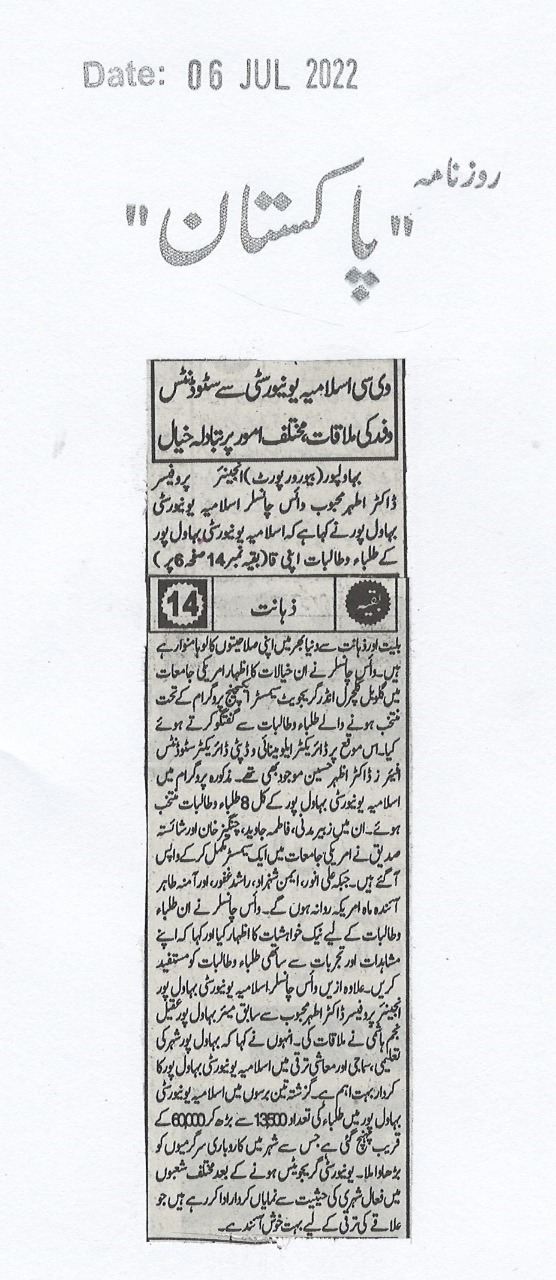 Date: 06 JUL 2022
روزنامہ
"پاکستان"
وی سی اسلامیہ یونیورسٹی سے سٹوڈنٹس
وفد کی ملاقات، مختلف امور پر تبادلہ خیال
بہاولپور (بیورو رپورٹ) انجینئر پروفیسر
ڈاکٹر اطہر محبوب وائس چانسلر اسلامیہ یونیورسٹی
بہاول پور نے کہا ہے کہ اسلامیہ یونیورسٹی بہاول پور
کے طلباء و طالبات اپنی قا (بقیہ نمبر 14 صفحہ 6 پر)
بقیہ ذہانت 14
بلیت اور ذہانت سے دنیا بھر میں اپنی صلاحیتوں کا لوہا منوا رہے
ہیں۔ وائس چانسلر نے ان خیالات کا اظہار امریکی جامعات
میں گلوبل کلچرل انڈر گریجویٹ سیمسٹر ایکسچینج پروگرام کے تحت
منتخب ہونے والے طلباء و طالبات سے گفتگو کرتے ہوئے
کیا۔ اس موقع پر ڈائریکٹر ایلومینائی و ڈپٹی ڈائریکٹر سٹوڈنٹس
افیئرز ڈاکٹر اظہر حسین موجود بھی تھے۔ مذکورہ پروگرام میں
اسلامیہ یونیورسٹی بہاول پور کے کل 8 طلباء و طالبات منتخب
ہوئے۔ ان میں زبیر مدنی، فاطمہ جاوید، چنگیز خان اور شائستہ
صدیق نے امریکی جامعات میں ایک سیمسٹر مکمل کر کے واپس
آگئے ہیں۔ جبکہ علی انور، ایمن شہزاد، راشد غفور، اور آمنہ طاہر
آئندہ ماہ امریکہ روانہ ہوں گے۔ وائس چانسلر نے ان طلباء
وطالبات کے لیے نیک خواہشات کا اظہار کیا اور کہا کہ اپنے
مشاہدات اور تجربات سے ساتھی طلباء و طالبات کو مستفید
کریں۔ علاوہ ازیں وائس چانسلر اسلامیہ یونیورسٹی بہاول پور
انجینئر پروفیسر ڈاکٹر اطہر محبوب سے سابق میئر بہاول پور عقیل
نجم ہاشمی نے ملاقات کی۔ انہوں نے کہا کہ بہاول پور شہر کی
تعلیمی، سماجی اور معاشی ترقی میں اسلامیہ یونیورسٹی بہاول پور کا
کردار بہت اہم ہے۔ گزشتہ تین برسوں میں اسلامیہ یونیورسٹی
بہاول پور میں طلباء کی تعداد 13500 سے بڑھ کر 60,000 کے
قریب پہنچ گئی ہے جس سے شہر میں کاروباری سرگرمیوں کو
بڑھاوا ملا۔ یونیورسٹی گریجویٹس ہونے کے بعد مختلف شعبوں
میں فعال شہری کی حیثیت سے نمایاں کردار ادا کر رہے ہیں جو
علاقے کی ترقی کے لیے بہت خوش آئند ہے۔